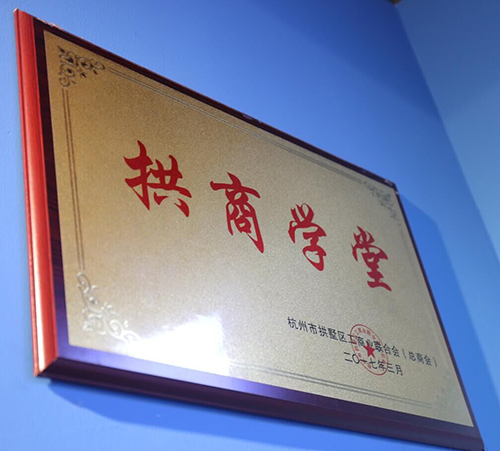 拱商学堂
杭州市拱墅区工商业联合会（总商会）
二〇一七年三月